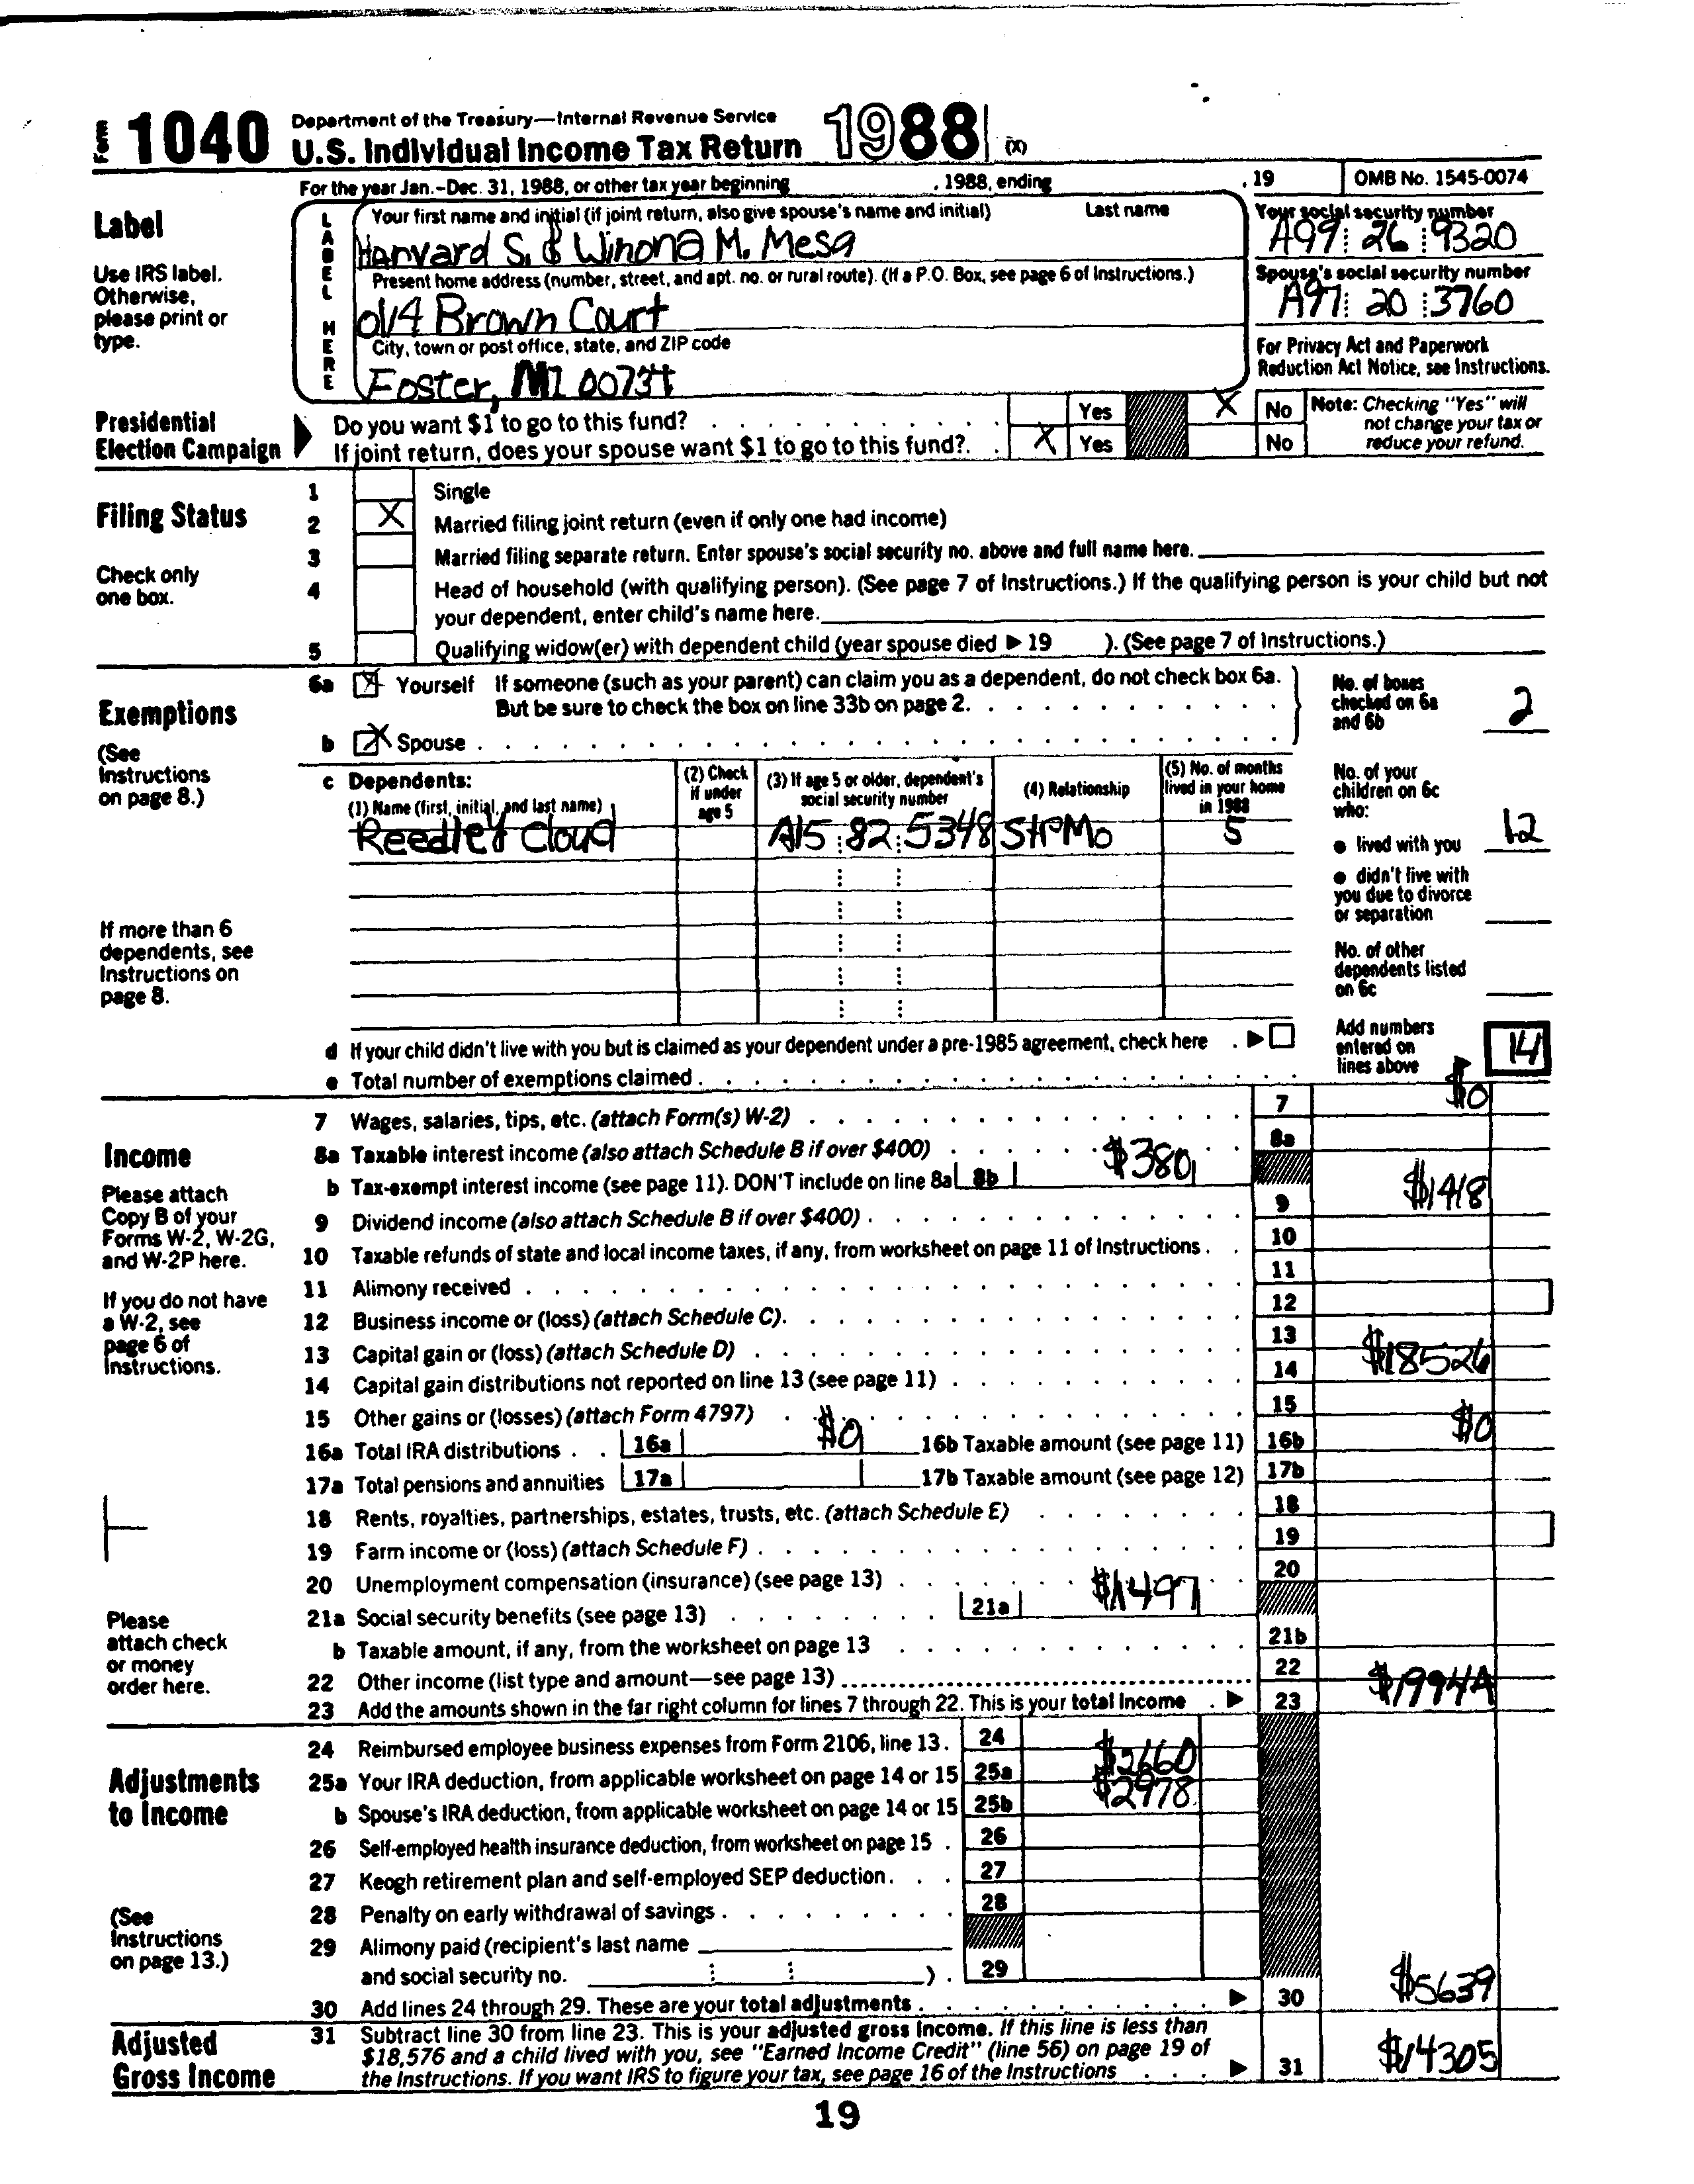 Form 1040 Department of the Treasury—Internal Revenue Service
U.S. Individual Income Tax Return 1988 (X)
For the year Jan.-Dec. 31, 1988, or other tax year beginning , 1988, ending , 19 OMB No. 1545-0074
Label
Use IRS label.
Otherwise,
please print or
type.
LABEL HERE
Your first name and initial (if joint return, also give spouse's name and initial) Last name
Harvard S. & Winona M. Mesa
Your social security number
A99 26 9320
Present home address (number, street, and apt. no. or rural route). (If a P.O. Box, see page 6 of Instructions.)
014 Brown Court
Spouse's social security number
A97 20 3760
City, town or post office, state, and ZIP code
Foster, MI 00734
For Privacy Act and Paperwork
Reduction Act Notice, see Instructions.
Presidential
Election Campaign
Do you want $1 to go to this fund? Yes X No
If joint return, does your spouse want $1 to go to this fund? X Yes No
Note: Checking "Yes" will
not change your tax or
reduce your refund.
Filing Status
Check only
one box.
1 Single
2 X Married filing joint return (even if only one had income)
3 Married filing separate return. Enter spouse's social security no. above and full name here.
4 Head of household (with qualifying person). (See page 7 of Instructions.) If the qualifying person is your child but not
your dependent, enter child's name here.
5 Qualifying widow(er) with dependent child (year spouse died ▶ 19 ). (See page 7 of Instructions.)
Exemptions
(See
Instructions
on page 8.)
If more than 6
dependents, see
Instructions on
page 8.
6a X Yourself If someone (such as your parent) can claim you as a dependent, do not check box 6a.
But be sure to check the box on line 33b on page 2.
b X Spouse
No. of boxes
checked on 6a
and 6b 2
c Dependents:
(1) Name (first, initial, and last name)
(2) Check
if under
age 5
(3) If age 5 or older, dependent's
social security number
(4) Relationship
(5) No. of months
lived in your home
in 1988
Reedley Cloud A15 82 5348 StPMo 5
No. of your
children on 6c
who:
● lived with you 12
● didn't live with
you due to divorce
or separation
No. of other
dependents listed
on 6c
d If your child didn't live with you but is claimed as your dependent under a pre-1985 agreement, check here ▶
e Total number of exemptions claimed
Add numbers
entered on
lines above ▶ 14
Income
Please attach
Copy B of your
Forms W-2, W-2G,
and W-2P here.
If you do not have
a W-2, see
page 6 of
Instructions.
Please
attach check
or money
order here.
7 Wages, salaries, tips, etc. (attach Form(s) W-2) 7 $0
8a Taxable interest income (also attach Schedule B if over $400) 8a
b Tax-exempt interest income (see page 11). DON'T include on line 8a 8b $380
9 Dividend income (also attach Schedule B if over $400) 9 $1418
10 Taxable refunds of state and local income taxes, if any, from worksheet on page 11 of Instructions 10
11 Alimony received 11
12 Business income or (loss) (attach Schedule C) 12
13 Capital gain or (loss) (attach Schedule D) 13
14 Capital gain distributions not reported on line 13 (see page 11) 14 $18526
15 Other gains or (losses) (attach Form 4797) 15
16a Total IRA distributions 16a $0 16b Taxable amount (see page 11) 16b $0
17a Total pensions and annuities 17a 17b Taxable amount (see page 12) 17b
18 Rents, royalties, partnerships, estates, trusts, etc. (attach Schedule E) 18
19 Farm income or (loss) (attach Schedule F) 19
20 Unemployment compensation (insurance) (see page 13) 20
21a Social security benefits (see page 13) 21a $1497
b Taxable amount, if any, from the worksheet on page 13 21b
22 Other income (list type and amount—see page 13) 22
23 Add the amounts shown in the far right column for lines 7 through 22. This is your total income ▶ 23 $19944
Adjustments
to Income
(See
Instructions
on page 13.)
24 Reimbursed employee business expenses from Form 2106, line 13. 24
25a Your IRA deduction, from applicable worksheet on page 14 or 15 25a $2660
b Spouse's IRA deduction, from applicable worksheet on page 14 or 15 25b $2978
26 Self-employed health insurance deduction, from worksheet on page 15 26
27 Keogh retirement plan and self-employed SEP deduction 27
28 Penalty on early withdrawal of savings 28
29 Alimony paid (recipient's last name
and social security no. ) 29
30 Add lines 24 through 29. These are your total adjustments ▶ 30 $5639
Adjusted
Gross Income
31 Subtract line 30 from line 23. This is your adjusted gross income. If this line is less than
$18,576 and a child lived with you, see "Earned Income Credit" (line 56) on page 19 of
the Instructions. If you want IRS to figure your tax, see page 16 of the Instructions ▶ 31 $14305
19